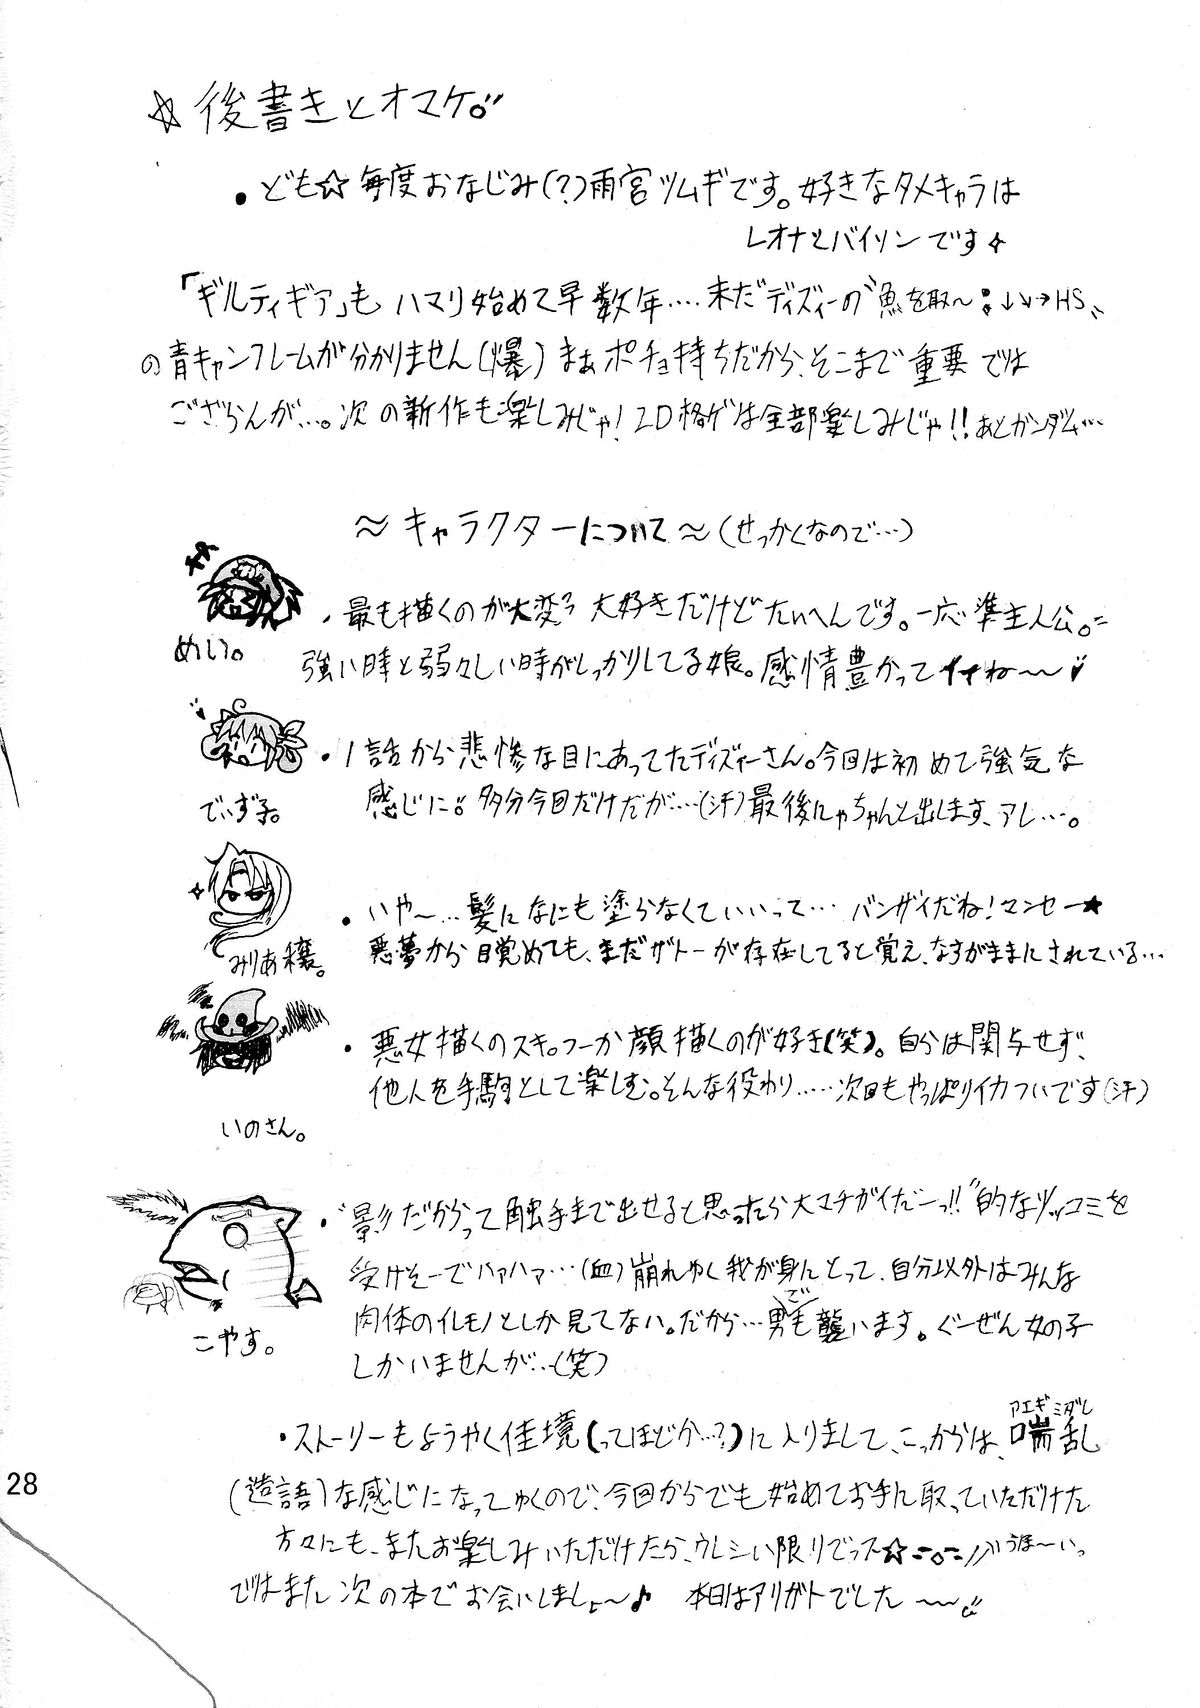 ☆後書きとオマケ。
・ども☆毎度おなじみ(?)雨宮ツムギです。好きなタメキャラは
レオナとバイソンです
「ギルティギア」もハマリ始めて早数年‥‥未だディズィーの"魚を取〜:↓↘→HS"
の青キャンフレームが分かりません(爆)まぁポチョ持ちだから、そこまで重要では
ござらんが…。次の新作も楽しみじゃ!2D格ゲは全部楽しみじゃ!!あとガンダム…
〜キャラクターについて〜(せっかくなので…)
・最も描くのが大変 大好きだけどたいへんです。一応準主人公。
めい。
強い時と弱々しい時がしっかりしてる娘。感情豊かってイイね〜
・1話から悲惨な目にあってたディズィーさん。今回は初めて強気な
でぃず子。
感じに。多分今回だけだが…(汗)最後にゃちゃんと出します、アレ…。
・いや〜…髪になにも塗らなくていいって… バンザイだね!マンセー★
みりあ穣。
悪夢から目覚めても、まだザトーが存在してると覚え、なすがままにされている…
・悪女描くのスキ。つーか顔描くのが好き(笑)。自分は関与せず、
他人を手駒として楽しむ。そんな役わり‥‥次回もやっぱりイカつい です(汗)
いのさん。
・"影だからって触手まで出せると思ったら大マチガイだーっ!!"的なツッコミを
受けそーでハァハァ…(血)崩れゆく我が身にとって、自分以外はみんな
こやす。
肉体のイレモノとしか見てない。だから…男でも襲います。ぐーぜん女の子
しかいませんが…(笑)
・ストーリーもようやく佳境(ってほどか…?)に入りまして、こっからは、喘乱
アエギミダレ
(造語)な感じになってゆくので、今回からでも始めてお手に取っていただけた
方々にも、またお楽しみいただけたら、ウレシい限りでっス☆ うほ〜い。
ではまた次の本でお会いしましょ〜♪ 本日はアリガトでした〜
28